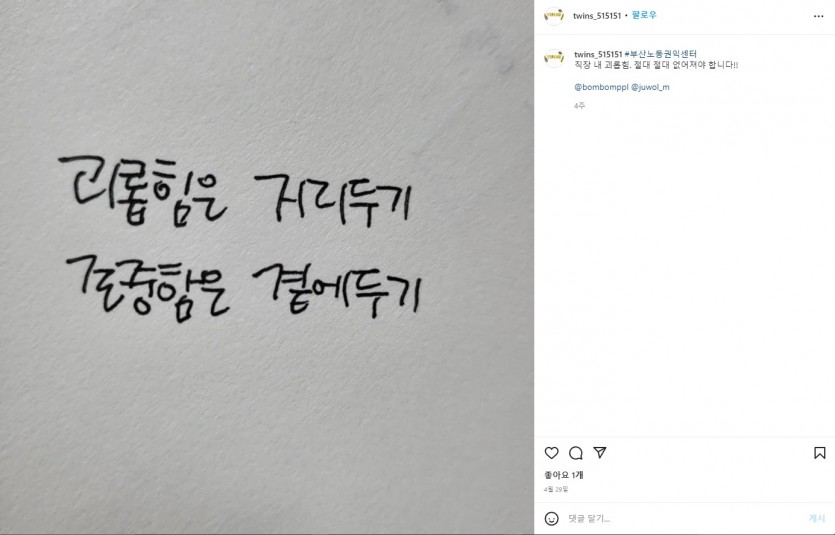 괴롭힘은 거리두기
존중함은 곁에두기
twins_515151 • 팔로우
twins_515151 #부산노동권익센터
직장 내 괴롭힘, 절대 절대 없어져야 합니다!!
@bombomppl @juwol_m
4주
좋아요 1개
4월 28일
댓글 달기...
게시